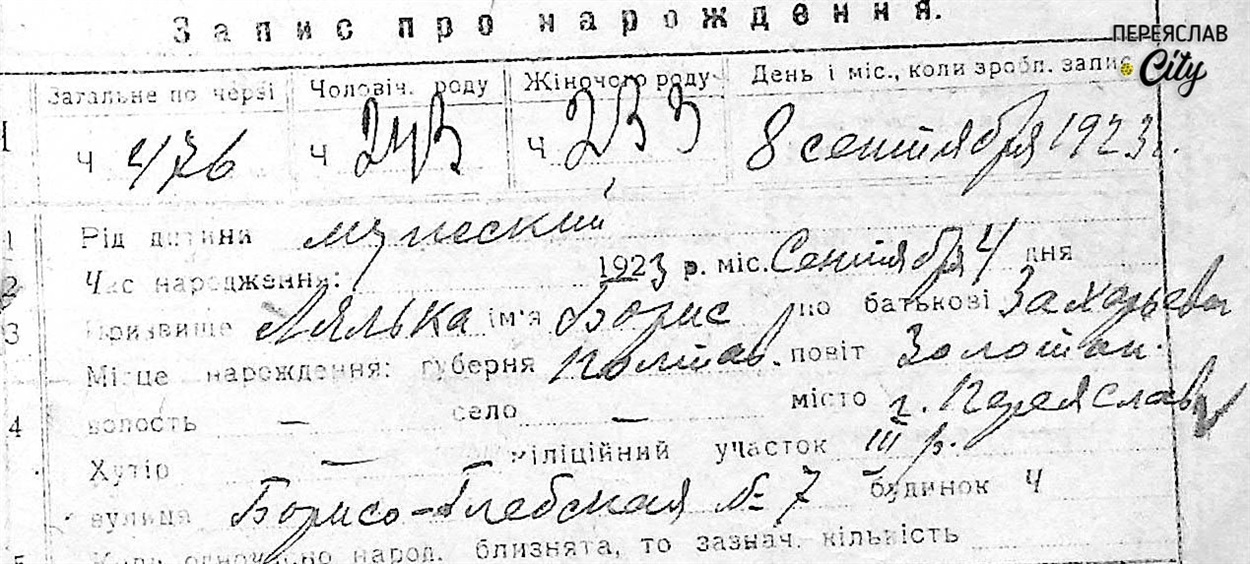 Запис про нарождення.
ПЕРЕЯСЛАВ
City
Загальне по черзі Чоловіч. роду Жіночого роду День і міс., коли зробл. запис
Ч 476 Ч 243 Ч 233 8 сентября 1923 г.
1 Рід дитина мужеский
2 Час народження: 1923 р. міс. Сентября 4 дня
3 Призвище Лялька ім'я Борис по батькові Захарьевич
Місце нарождення: губерня Полтав. повіт Золотон.
4 волость — село — місто г. Переяслав
Хутір — міліційний участок III р.
вулиця Борисо-Глебская № 7 будинок Ч
5 одночасно народ. близнята, то зазнач. кількість